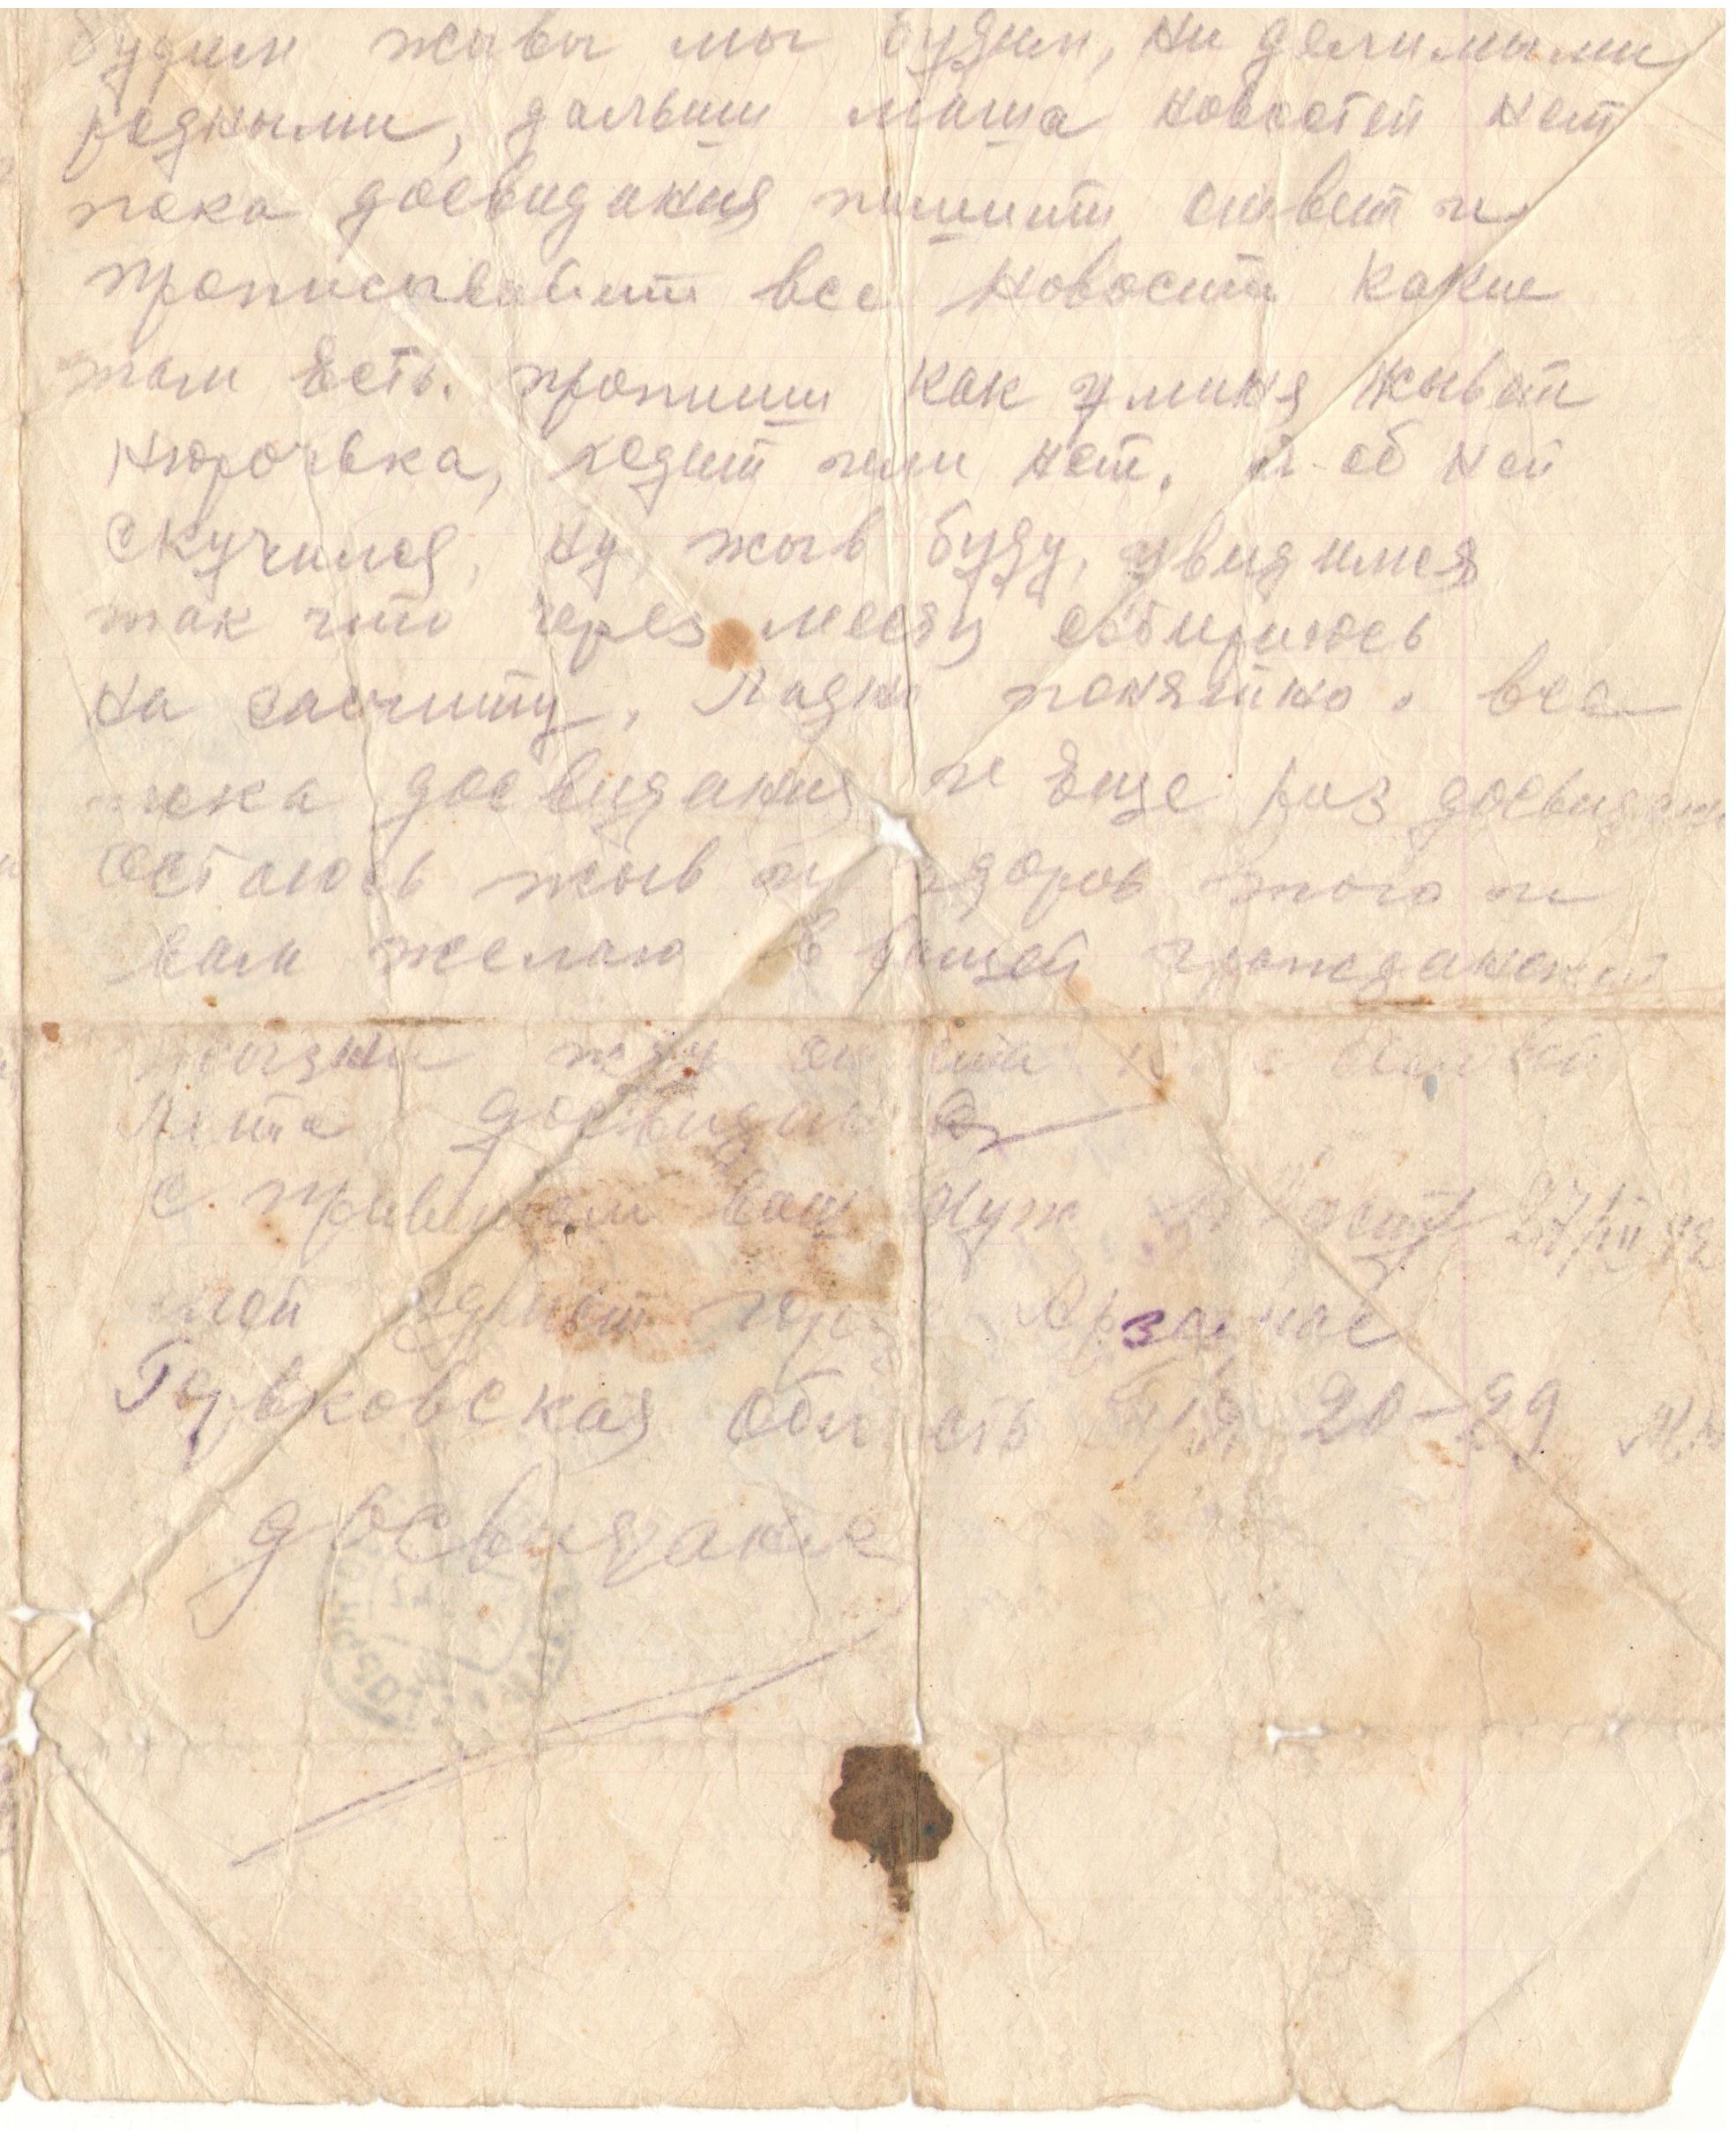 будим жывы мы будим, ни делимыми
родными, дальши маша новостей нет
пока досвидания пишит ответ и
прописывайит все новости какие
там Есть. пропиши как у миня жывет
Нюрочька, ходит или нет. я об ней
скучился, ну жыв буду, увидимся
так что через месяц собираюсь
на защиту. Ладно понятно. все
пока досвидания и Еще раз досвидан
остаюсь жыв и здоров того и
вам желаю в вашей гражданской
жызни жду
досвидания
с приветом ваш муж 27/VII 42
мой адрист гор Арзамас
Горьковская область п/я 20-29
досвидание